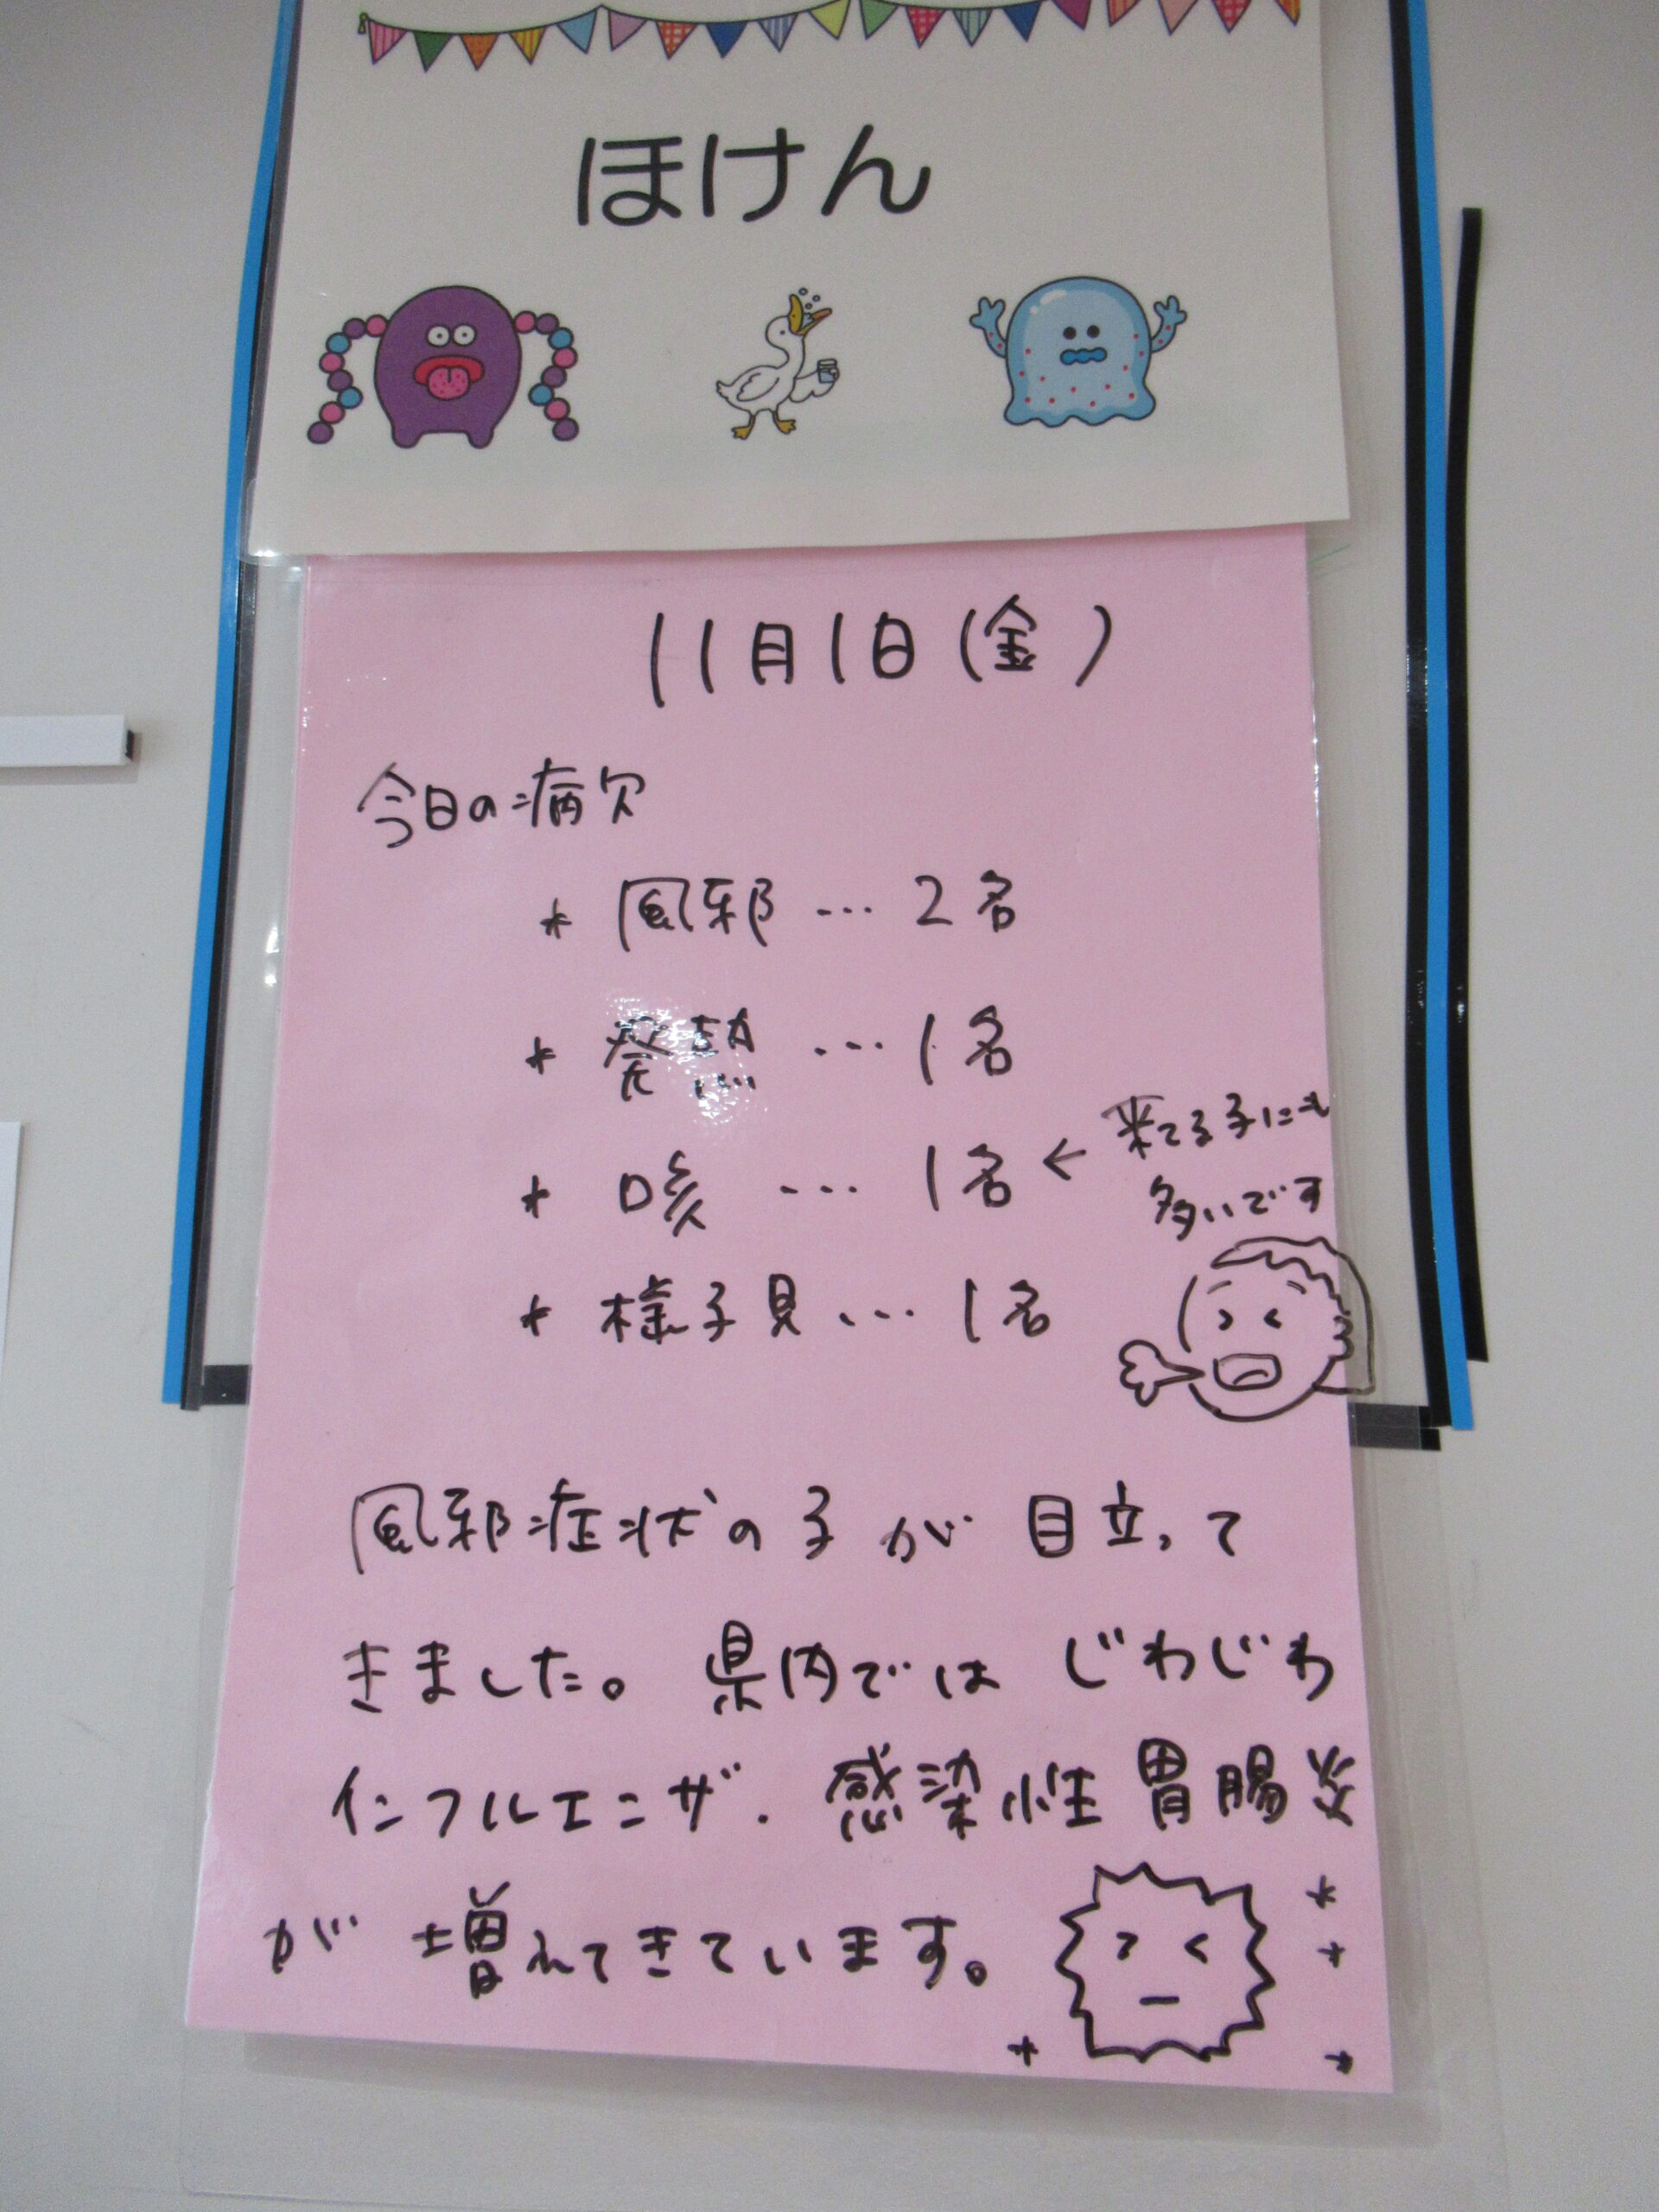 ほけん
11月1日(金)
今日の病欠
* 風邪…2名
* 発熱…1名
* 咳…1名 ← 来てる子にも
多いです
* 様子見…1名
風邪症状の子が目立って
きました。県内ではじわじわ
インフルエンザ.感染性胃腸炎
が増れてきています。